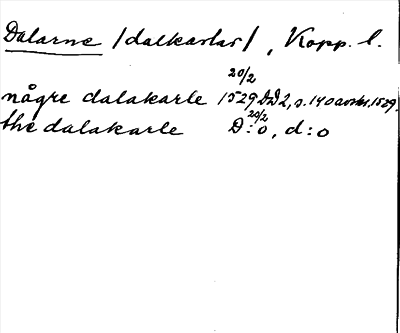 Dalarne /dalkarlar/, Kopp. l.
20/2
någre dalakarle 1529 DD 2, s. 140 avskr. 1529.
20/2
the dalakarle D:o, d:o